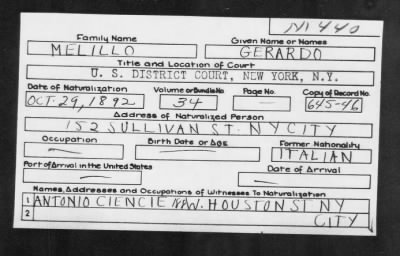 M 440
Family Name Given Name or Names
MELILLO GERARDO
Title and Location of Court
U. S. DISTRICT COURT, NEW YORK, N.Y.
Date of Naturalization Volume or Bundle No Page No. Copy of Record No.
OCT. 29, 1892 34 — 645-46
Address of Naturalized Person
152 SULLIVAN ST. NY CITY
Occupation Birth Date or Age Former Nationality
— — ITALIAN
Port of Arrival in the United States Date of Arrival
— —
Names, Addresses and Occupations of Witnesses To Naturalization
1 ANTONIO CIENCIE W. HOUSTON ST NY
2 CITY